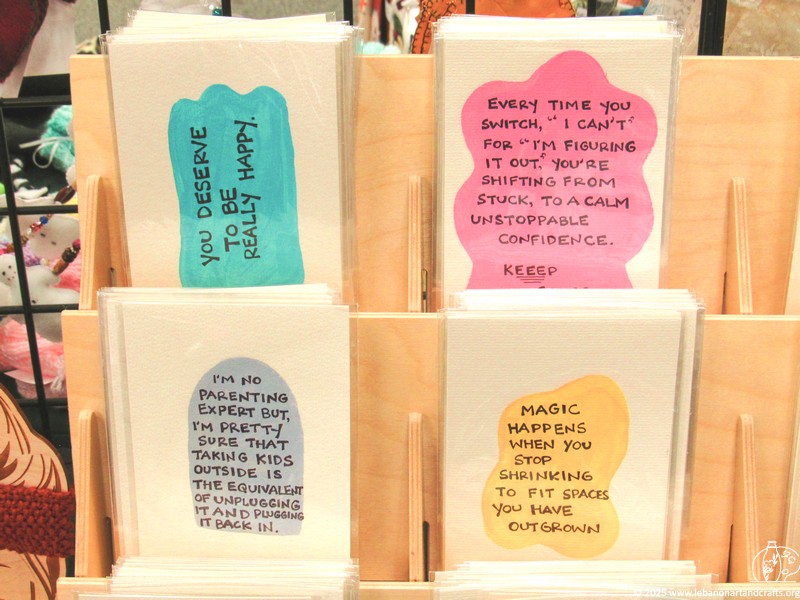 YOU DESERVE
TO BE
REALLY HAPPY.
EVERY TIME YOU
SWITCH, "I CAN'T"
FOR "I'M FIGURING
IT OUT." YOU'RE
SHIFTING FROM
STUCK, TO A CALM
UNSTOPPABLE
CONFIDENCE.
KEEEP
I'M NO
PARENTING
EXPERT BUT,
I'M PRETTY
SURE THAT
TAKING KIDS
OUTSIDE IS
THE EQUIVALENT
OF UNPLUGGING
IT AND PLUGGING
IT BACK IN.
MAGIC
HAPPENS
WHEN YOU
STOP
SHRINKING
TO FIT SPACES
YOU HAVE
OUTGROWN
© 2025 www.lebanonartandcrafts.org